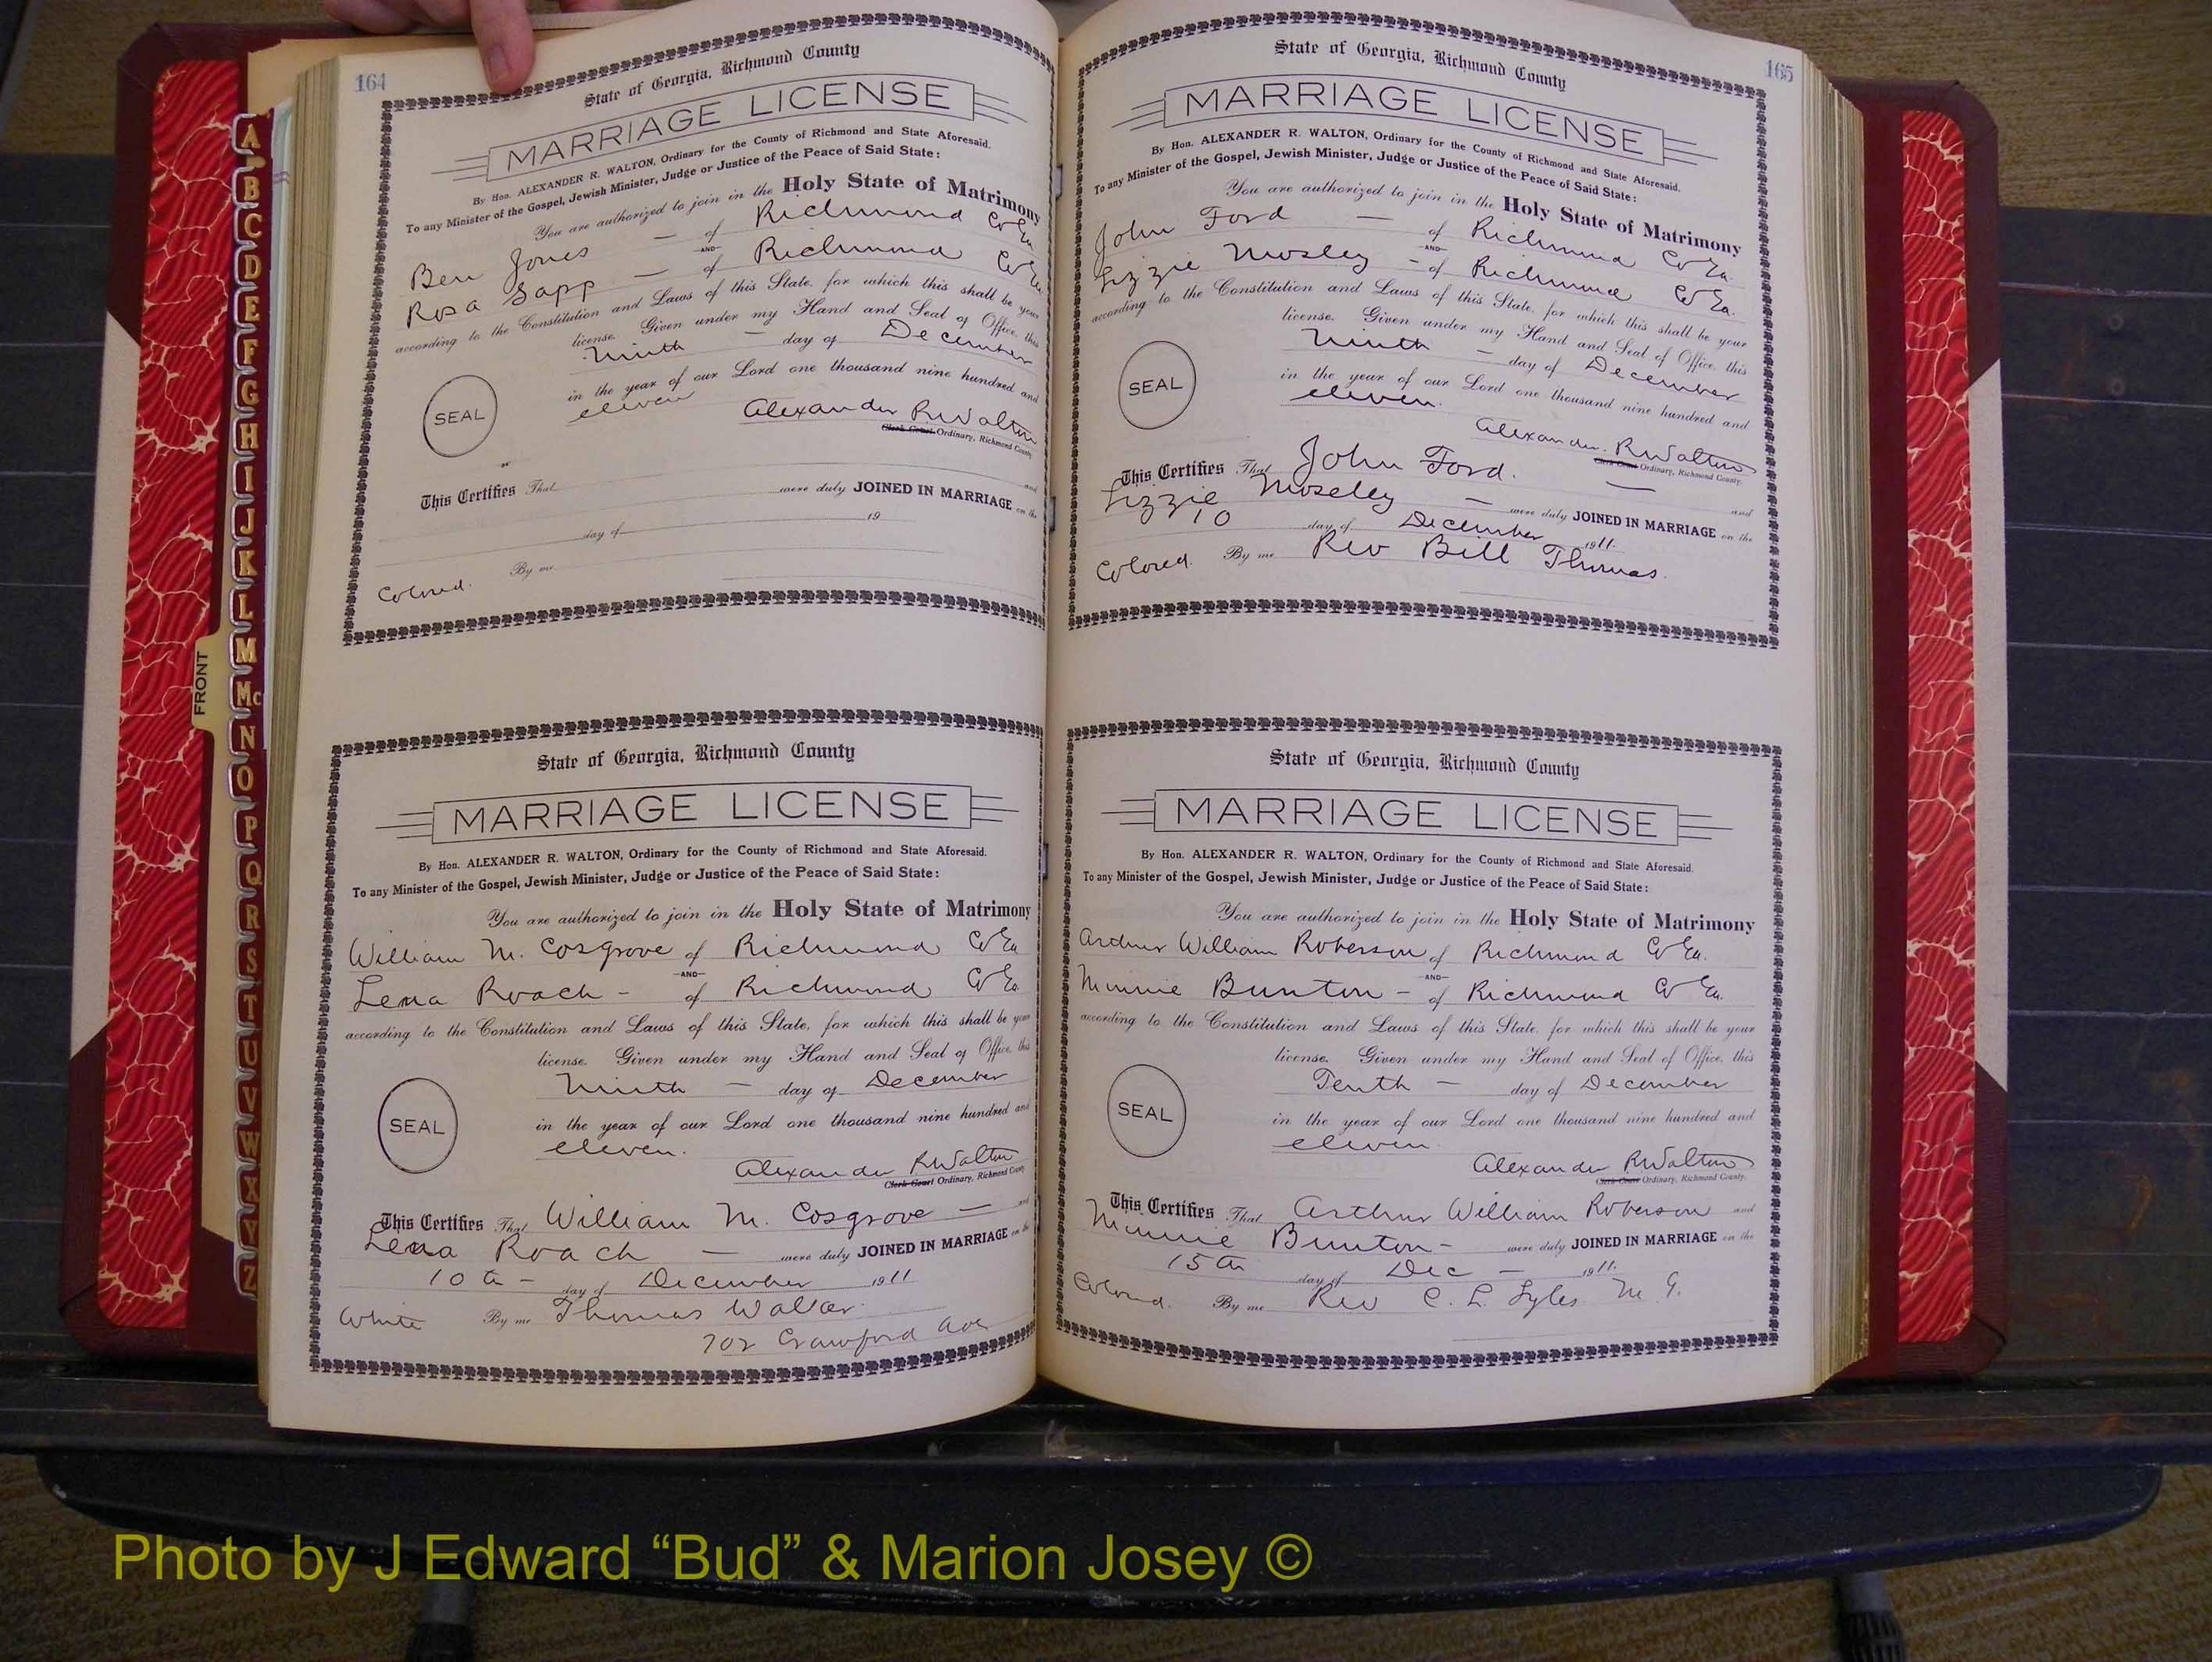 164
State of Georgia, Richmond County
MARRIAGE LICENSE
By Hon. ALEXANDER R. WALTON, Ordinary for the County of Richmond and State Aforesaid.
To any Minister of the Gospel, Jewish Minister, Judge or Justice of the Peace of Said State:
You are authorized to join in the Holy State of Matrimony
Ben Jones — of Richmond Co Ga
AND
Rosa Sapp — of Richmond Co Ga
according to the Constitution and Laws of this State, for which this shall be your
license. Given under my Hand and Seal of Office, this
Ninth — day of December
in the year of our Lord one thousand nine hundred and
eleven
SEAL
Alexander R Walton
Clerk Court Ordinary, Richmond County
This Certifies That and
were duly JOINED IN MARRIAGE on the
day of 19
Colored. By me
State of Georgia, Richmond County
MARRIAGE LICENSE
By Hon. ALEXANDER R. WALTON, Ordinary for the County of Richmond and State Aforesaid.
To any Minister of the Gospel, Jewish Minister, Judge or Justice of the Peace of Said State:
You are authorized to join in the Holy State of Matrimony
William M. Cosgrove of Richmond Co Ga
AND
Lena Roach - of Richmond Co Ga
according to the Constitution and Laws of this State, for which this shall be your
license. Given under my Hand and Seal of Office, this
Ninth — day of December
in the year of our Lord one thousand nine hundred and
eleven.
SEAL
Alexander R Walton
Clerk Court Ordinary, Richmond County
This Certifies That William M. Cosgrove — and
Lena Roach — were duly JOINED IN MARRIAGE on the
10th - day of December 1911
White By me Thomas Walker
702 Crawford Ave
165
State of Georgia, Richmond County
MARRIAGE LICENSE
By Hon. ALEXANDER R. WALTON, Ordinary for the County of Richmond and State Aforesaid.
To any Minister of the Gospel, Jewish Minister, Judge or Justice of the Peace of Said State:
You are authorized to join in the Holy State of Matrimony
John Ford — of Richmond Co Ga.
AND
Lizzie Mosley - of Richmond Co Ga.
according to the Constitution and Laws of this State, for which this shall be your
license. Given under my Hand and Seal of Office, this
Ninth — day of December
in the year of our Lord one thousand nine hundred and
eleven.
SEAL
Alexander R Walton
Clerk Court Ordinary, Richmond County.
This Certifies That John Ford. — and
Lizzie Moseley — were duly JOINED IN MARRIAGE on the
10 day of December 1911.
Colored. By me Rev Bill Thomas.
State of Georgia, Richmond County
MARRIAGE LICENSE
By Hon. ALEXANDER R. WALTON, Ordinary for the County of Richmond and State Aforesaid.
To any Minister of the Gospel, Jewish Minister, Judge or Justice of the Peace of Said State:
You are authorized to join in the Holy State of Matrimony
Arthur William Roberson of Richmond Co Ga.
AND
Minnie Bunton - of Richmond Co Ga.
according to the Constitution and Laws of this State, for which this shall be your
license. Given under my Hand and Seal of Office, this
Tenth — day of December
in the year of our Lord one thousand nine hundred and
eleven
SEAL
Alexander R Walton
Clerk Court Ordinary, Richmond County.
This Certifies That Arthur William Roberson and
Minnie Bunton - were duly JOINED IN MARRIAGE on the
15th day of Dec — 1911.
Colored. By me Rev C. L. Lyles M. G.
FRONT
A
B
C
D
E
F
G
H
I
J
K
L
M
Mc
N
O
P
Q
R
S
T
U
V
W
X
Y
Z
Photo by J Edward “Bud” & Marion Josey ©